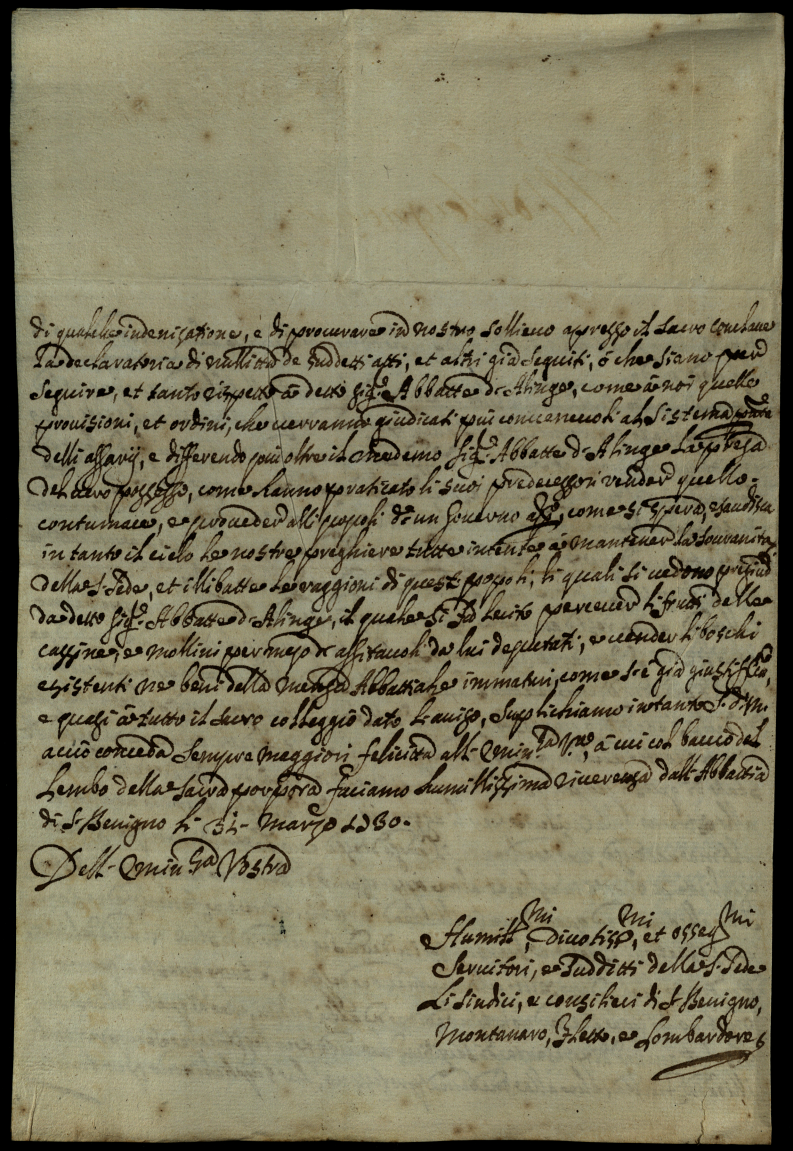 di qualche indenisatione, e di procurare in nostro sollievo apresso il sacro conclave
la declaratoria di nullittà de suddetti atti, et altri già seguiti, ò che siano per
seguire, et tanto rispetto à detto sig.r Abbatte d'Alinge, come à noi quelle
provisioni, et ordini, che verranno giudicati più convenevoli al sistema pnte
delli affarij, e differendo più oltre il medemo sig.r Abbatte d'Alinge la presa
del suo possesso, come hanno praticato li suoi predecessori render quello
contumace, e proveder alli popoli di un Governo, come si spera, esaudisca
in tanto il cielo le nostre preghiere tutte intente à mantener la souranità
della S. Sede, et illibatte le raggioni di questi popoli, li quali si vedono
da detto sig.r Abbatte d'Alinge, il quale si fà lecito perceuer li frutti delle
cassine, e mollini per mezo d'affittauoli da lui deputati, e vender li boschi
esistenti ne beni della mensa Abbatiale immaturi, come s'è già
e quasi à tutto il sacro colleggio dato l'auiso, supplichiamo in tanto
acciò conceda sempre maggiori felicittà all'Emin.za V.ra, à cui col baccio del
lembo della sacra porpora facciamo humillissima riverenza dall'Abbatia
di S. Benigno li 31 marzo 1730.
Dell'Emin.za Vostra
Humill.mi, Divotiss.mi, et osseq.mi
Servitori, e sudditti della S. Sede
Li sindici, e consilieri di S. Benigno,
Montanaro, Feletto, e Lombardore